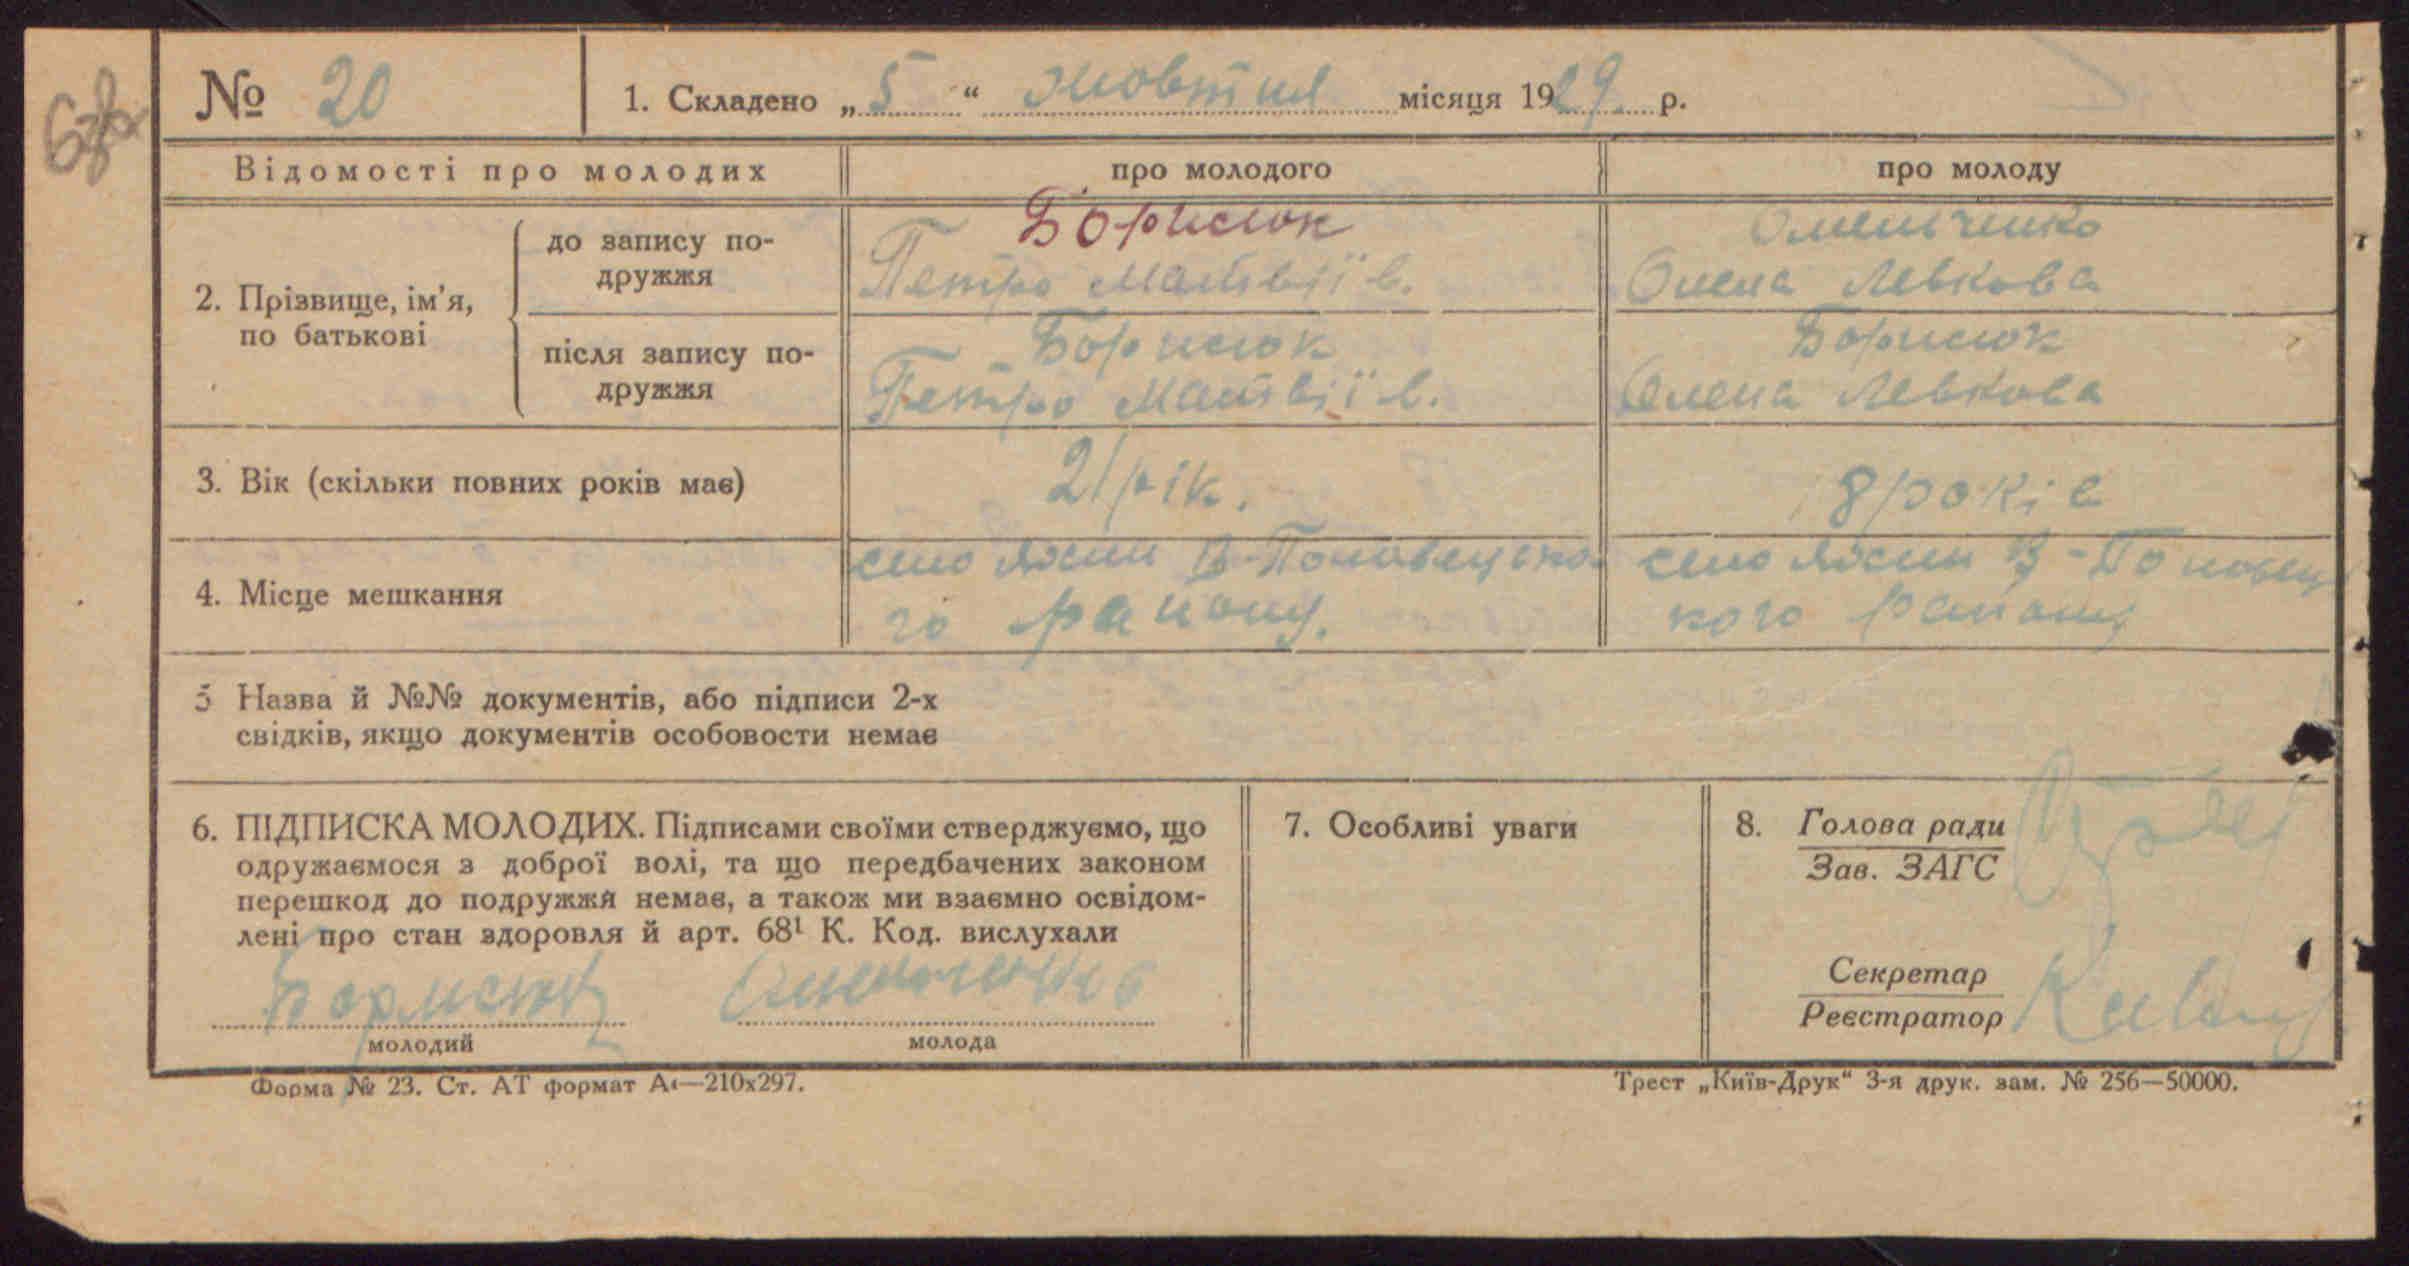 № 20
1. Складено „5“ жовтня місяця 1929 р.
Відомості про молодих
про молодого
про молоду
2. Прізвище, ім’я,
по батькові
до запису по-
дружжя
Борисюк
Петро Матвіїв.
Омельченко
Олена Левкова
після запису по-
дружжя
Борисюк
Петро Матвіїв.
Борисюк
Олена Левкова
3. Вік (скільки повних років має)
21 рік.
18 років
4. Місце мешкання
село В-Половецько
го району.
село В-Половец
кого району
5 Назва й №№ документів, або підписи 2-х
свідків, якщо документів особовости немає
6. ПІДПИСКА МОЛОДИХ. Підписами своїми стверджуємо, що
одружаємося з доброї волі, та що передбачених законом
перешкод до подружжя немає, а також ми взаємно освідом-
лені про стан здоровля й арт. 68¹ К. Код. вислухали
Борисюк
молодий
Омельченко
молода
7. Особливі уваги
8. Голова ради
Зав. ЗАГС
Секретар
Реєстратор
Форма № 23. Ст. АТ формат А4—210х297.
Трест „Київ-Друк“ 3-я друк. зам. № 256—50000.